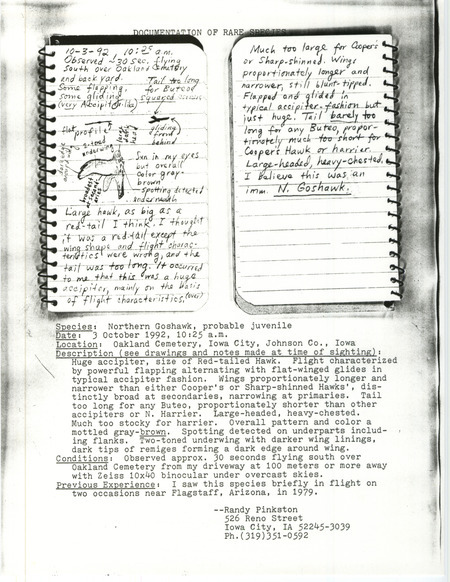 DOCUMENTATION OF RARE SPECIES
10-3-92 10:25 a.m.
Observed ~30 sec. flying
south over Oakland Cemetery
and back yard.
Some flapping,
some gliding
(very Accipitrilla)
Tail too long
for Buteo
squared
flat profile
gliding
from
behind
2-toned
underwing
Sun in my eyes
but overall
color gray-
brown
spotting detected
underneath
Large hawk, as big as a
red-tail I think. I thought
it was a red-tail except the
wing shape and flight charac-
teristics were wrong, and the
tail was too long. It occurred
to me that this was a huge
accipiter, mainly on the basis
of flight characteristics. (over)
Much too large for Cooper's
or Sharp-shinned. Wings
proportionately longer and
narrower, still blunt-tipped.
Flapped and glided in
typical accipiter-fashion but
just huge. Tail barely too
long for any Buteo, propor-
tionately much too short for
Cooper's Hawk or harrier.
Large-headed, heavy-chested.
I believe this was an
imm. N. Goshawk.
Species: Northern Goshawk, probable juvenile
Date: 3 October 1992, 10:25 a.m.
Location: Oakland Cemetery, Iowa City, Johnson Co., Iowa
Description (see drawings and notes made at time of sighting):
Huge accipiter, size of Red-tailed Hawk. Flight characterized
by powerful flapping alternating with flat-winged glides in
typical accipiter fashion. Wings proportionately longer and
narrower than either Cooper's or Sharp-shinned Hawks', dis-
tinctly broad at secondaries, narrowing at primaries. Tail
too long for any Buteo, proportionately shorter than other
accipiters or N. Harrier. Large-headed, heavy-chested.
Much too stocky for harrier. Overall pattern and color a
mottled gray-brown. Spotting detected on underparts includ-
ing flanks. Two-toned underwing with darker wing linings,
dark tips of remiges forming a dark edge around wing.
Conditions: Observed approx. 30 seconds flying south over
Oakland Cemetery from my driveway at 100 meters or more away
with Zeiss 10x40 binocular under overcast skies.
Previous Experience: I saw this species briefly in flight on
two occasions near Flagstaff, Arizona, in 1979.
--Randy Pinkston
526 Reno Street
Iowa City, IA 52245-3039
Ph.(319)351-0592